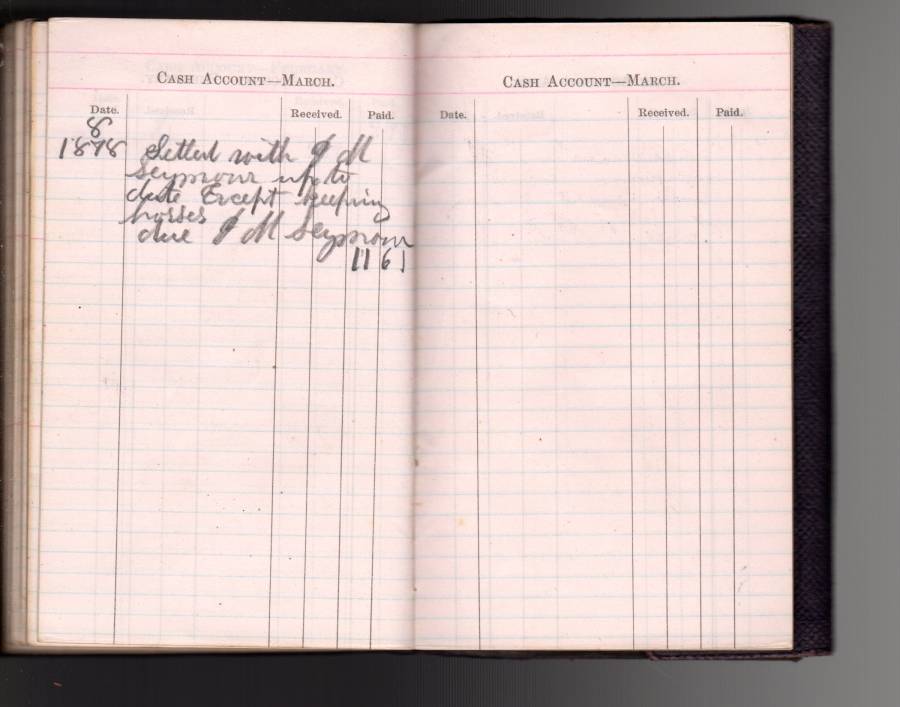 CASH ACCOUNT—MARCH.
Date. Received. Paid.
8
1878 Settled with J M
Seymour up to
date Except keeping
horses
due J M Seymour
11 61
CASH ACCOUNT—MARCH.
Date. Received. Paid.